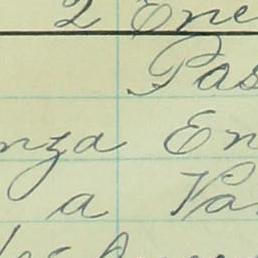 2 Ene
Pas
nza En
a Va